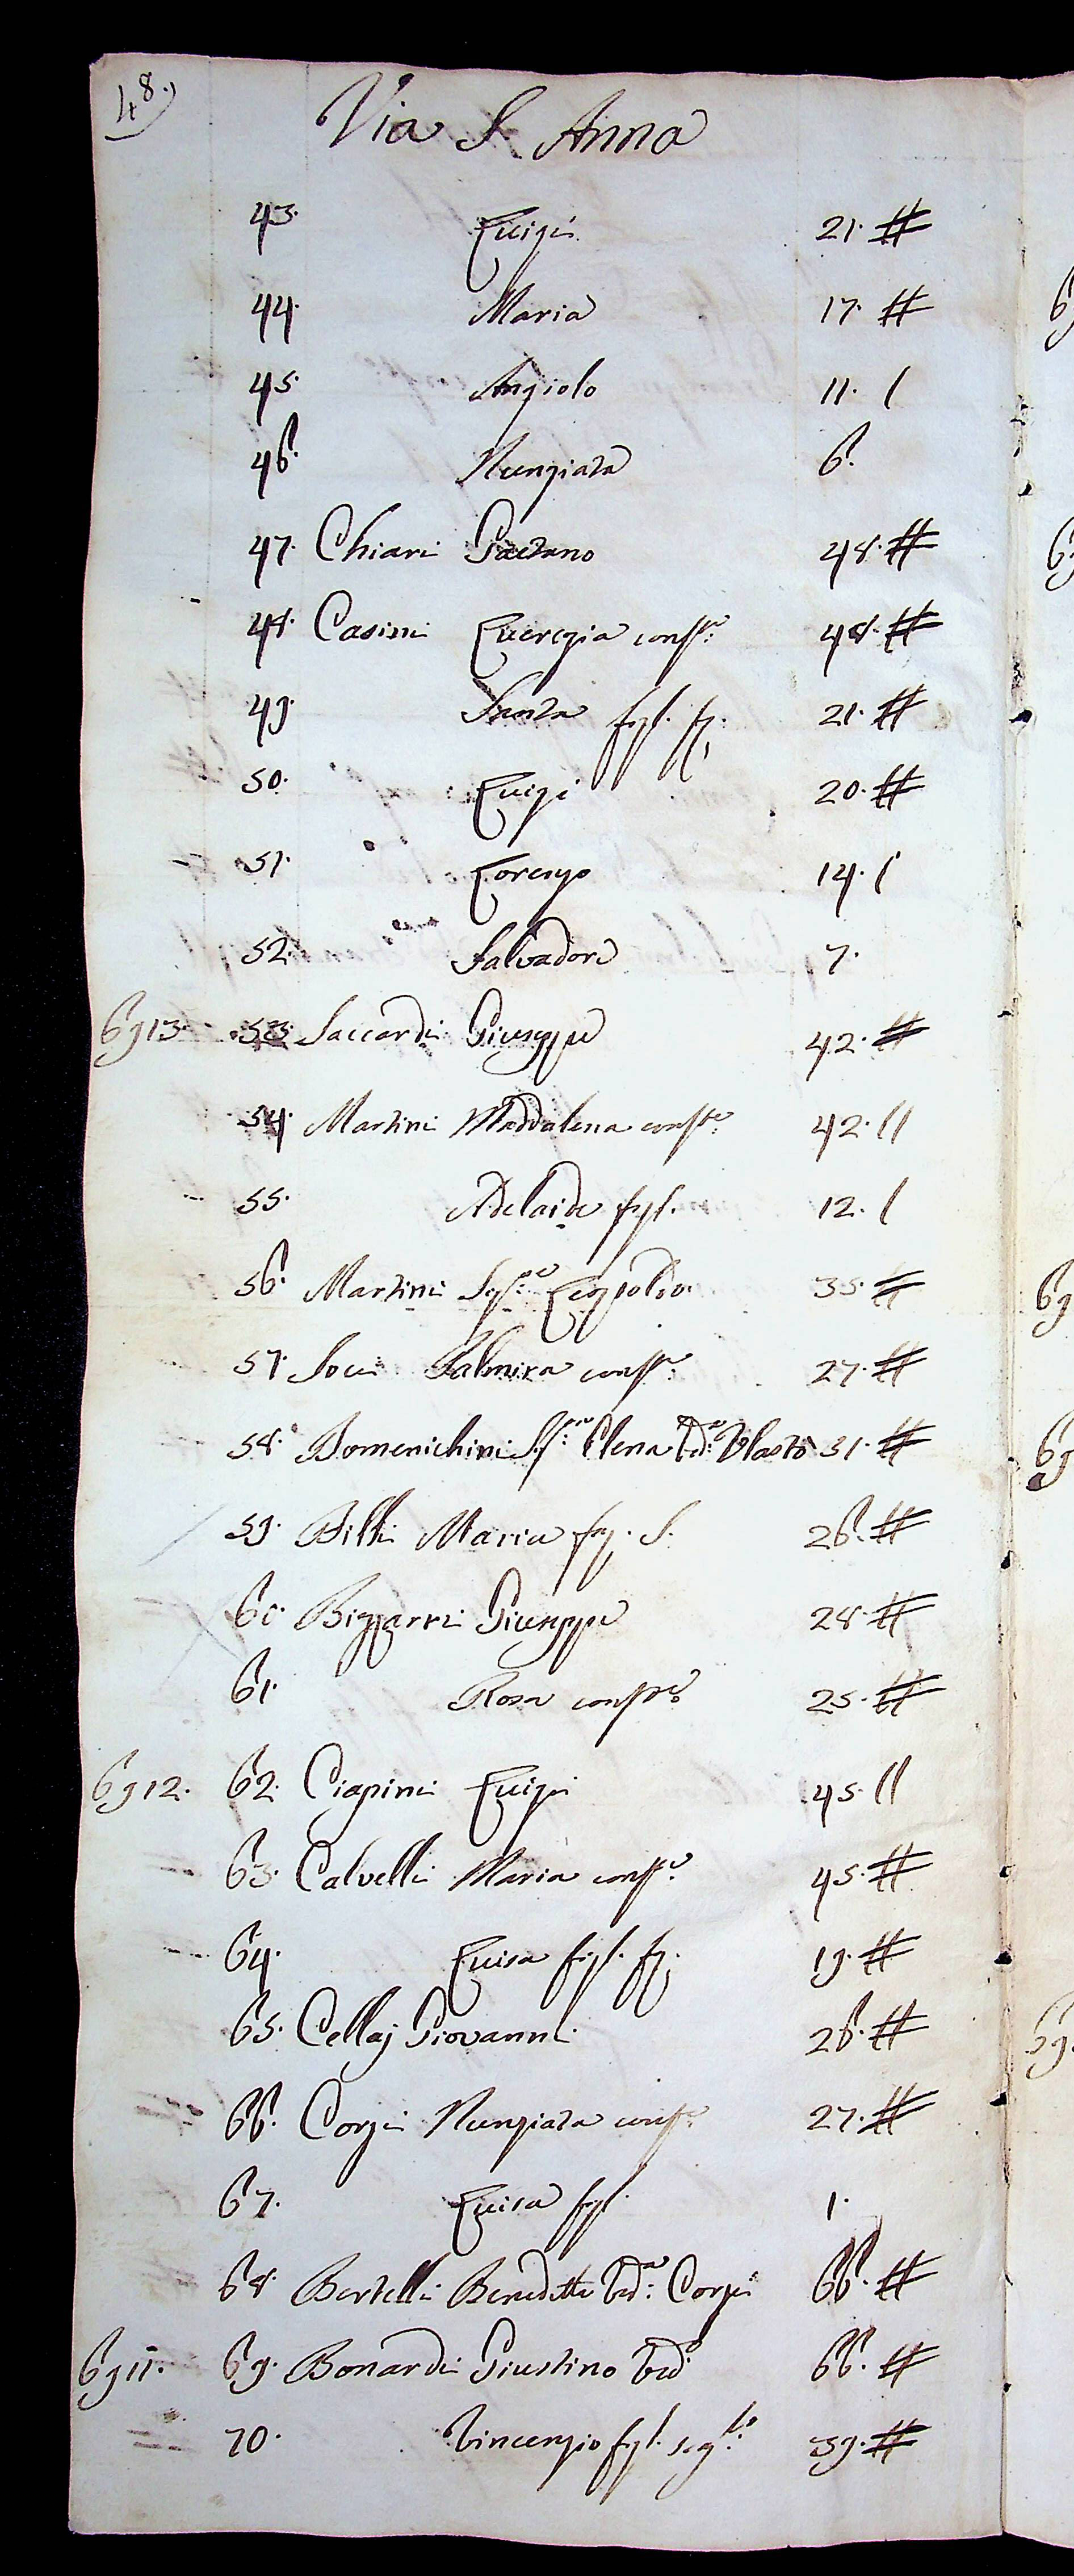 48.
Via S. Anna
43. Luigi 21. #
44. Maria 17. #
45. Angiolo 11. /
46. Nunziata 6.
47. Chiari Gaetano 48. #
48. Casini Lucrezia conste: 48. #
49. Santa figl. 21. #
50. Luigi 20. #
51. Lorenzo 14. /
52. Salvadore 7.
6913. 53. Saccardi Giuseppe 42. #
54. Martini Maddalena conste: 42. //
55. Adelaide figl. 12. /
56. Martini Leopoldo 35. #
57. Soci Palmira conste: 27. #
58. Domenichini Elena Vda: Vlasto 31. #
59. Billi Maria S. 26. #
60. Bizzarri Giuseppe 28. #
61. Rosa conste: 25. #
6912. 62. Ciapini Luigi 45. //
63. Calvelli Maria conste: 45. #
64. Luisa figl. 19. #
65. Cellaj Giovanni 26. #
66. Corzi Nunziata conste: 27. #
67. Luisa figl. 1.
68. Bertelli Benedetta Vda: Corzi 66. #
6911. 69. Bonardi Giustino Vdo 66. #
70. Vincenzio figl. 39. #